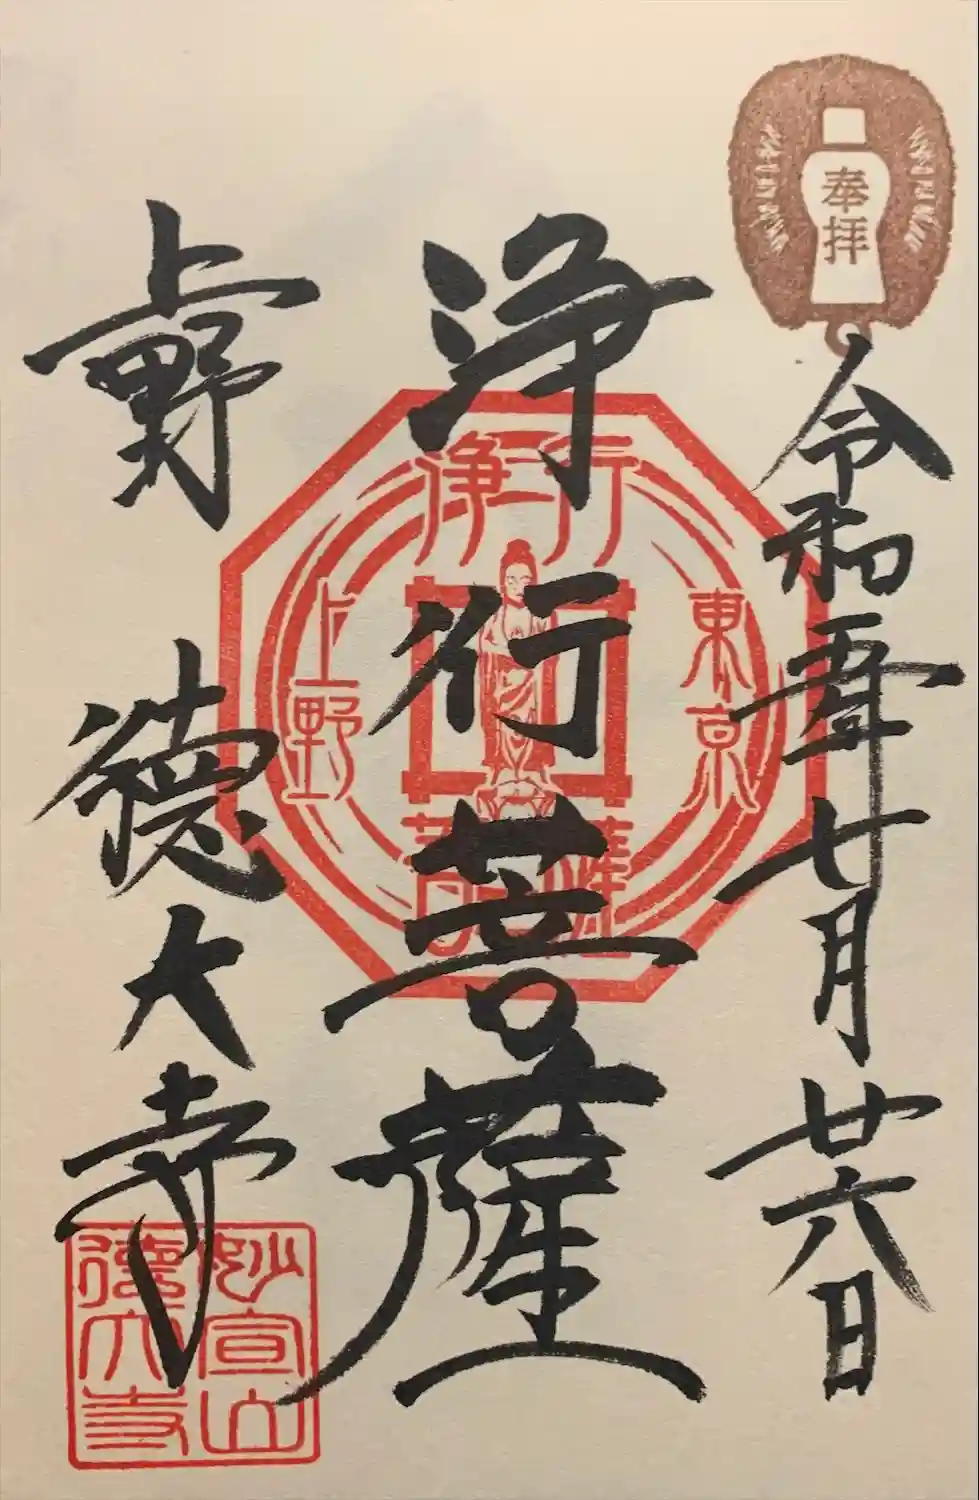 奉拝
令和五年七月廿六日
浄行菩薩
上野
徳大寺
浄行
東京
上野
菩薩
妙宣山
徳大寺